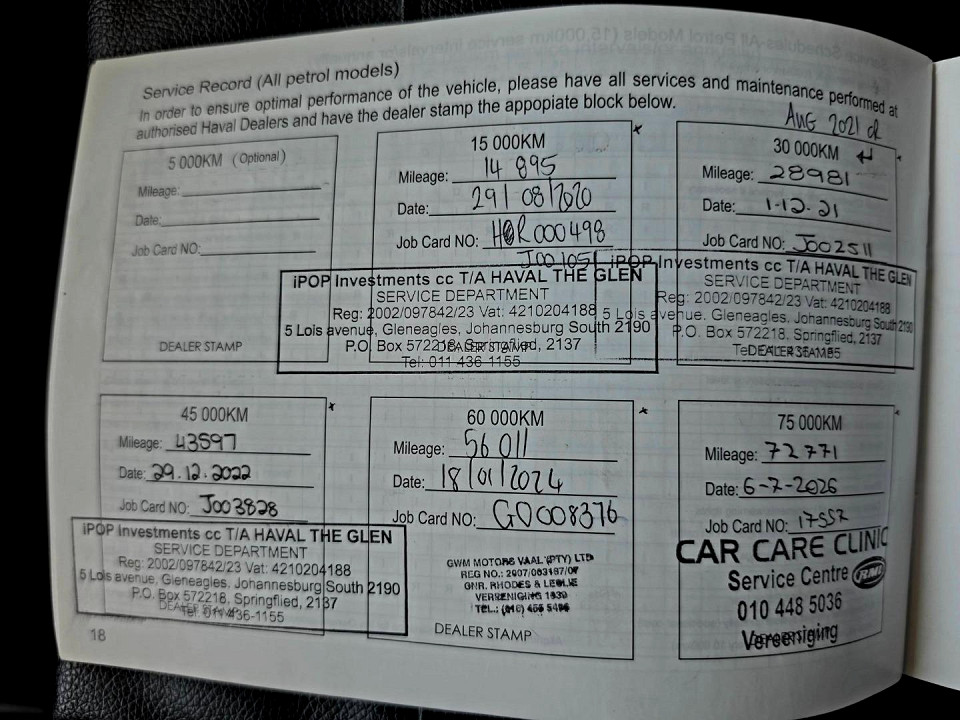 Service Record (All petrol models)
In order to ensure optimal performance of the vehicle, please have all services and maintenance performed at
authorised Haval Dealers and have the dealer stamp the appopiate block below.
5 000KM (Optional)
Mileage:
Date:
Job Card NO:
DEALER STAMP
15 000KM
Mileage: 14 895
Date: 29/08/2020
Job Card NO: HOR000498
J001051
iPOP Investments cc T/A HAVAL THE GLEN
SERVICE DEPARTMENT
Reg: 2002/097842/23 Vat: 4210204188
5 Lois avenue, Gleneagles, Johannesburg South 2190
P.O. Box 572218, Springflied, 2137
DEALER STAMP
Tel: 011 436 1155
Aug 2021
30 000KM
Mileage: 28981
Date: 1-12-21
Job Card NO: J002511
iPOP Investments cc T/A HAVAL THE GLEN
SERVICE DEPARTMENT
Reg: 2002/097842/23 Vat: 4210204188
5 Lois avenue, Gleneagles, Johannesburg South 2190
P.O. Box 572218, Springflied, 2137
DEALER STAMP
45 000KM
Mileage: 43597
Date: 29.12.2022
Job Card NO: J003828
iPOP Investments cc T/A HAVAL THE GLEN
SERVICE DEPARTMENT
Reg: 2002/097842/23 Vat: 4210204188
5 Lois avenue, Gleneagles, Johannesburg South 2190
P.O. Box 572218, Springflied, 2137
DEALER STAMP
Tel: 011 436-1155
60 000KM
Mileage: 56 011
Date: 18/01/2024
Job Card NO: GD008376
GWM MOTORS VAAL (PTY) LTD
REG NO.: 2007/003187/07
CNR. RHODES & LESLIE
VEREENIGING 1939
TEL.: (016) 455
DEALER STAMP
75 000KM
Mileage: 72771
Date: 6-7-2026
Job Card NO: 17557
CAR CARE CLINIC
Service Centre RMI
010 448 5036
Vereeniging
DEALER STAMP
18